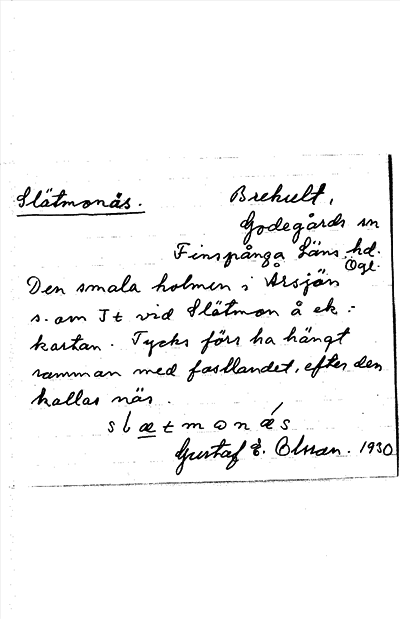 Slätmonäs. Brehult,
Godegårds sn
Finspånga Läns hd.
Ögl.
Den smala holmen i Ärsjön
s. om It vid Slätmon å ek.-
kartan. Tycks förr ha hängt
samman med fastlandet, efter den
kallas näs.
slætmonæ´s
Gustaf E. Olsson. 1930